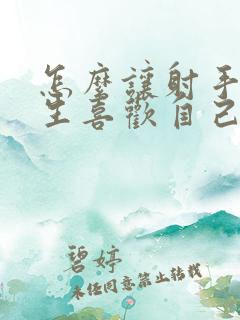 怎麼讓射手
生喜歡自己
碧婷
未经同意禁止转载